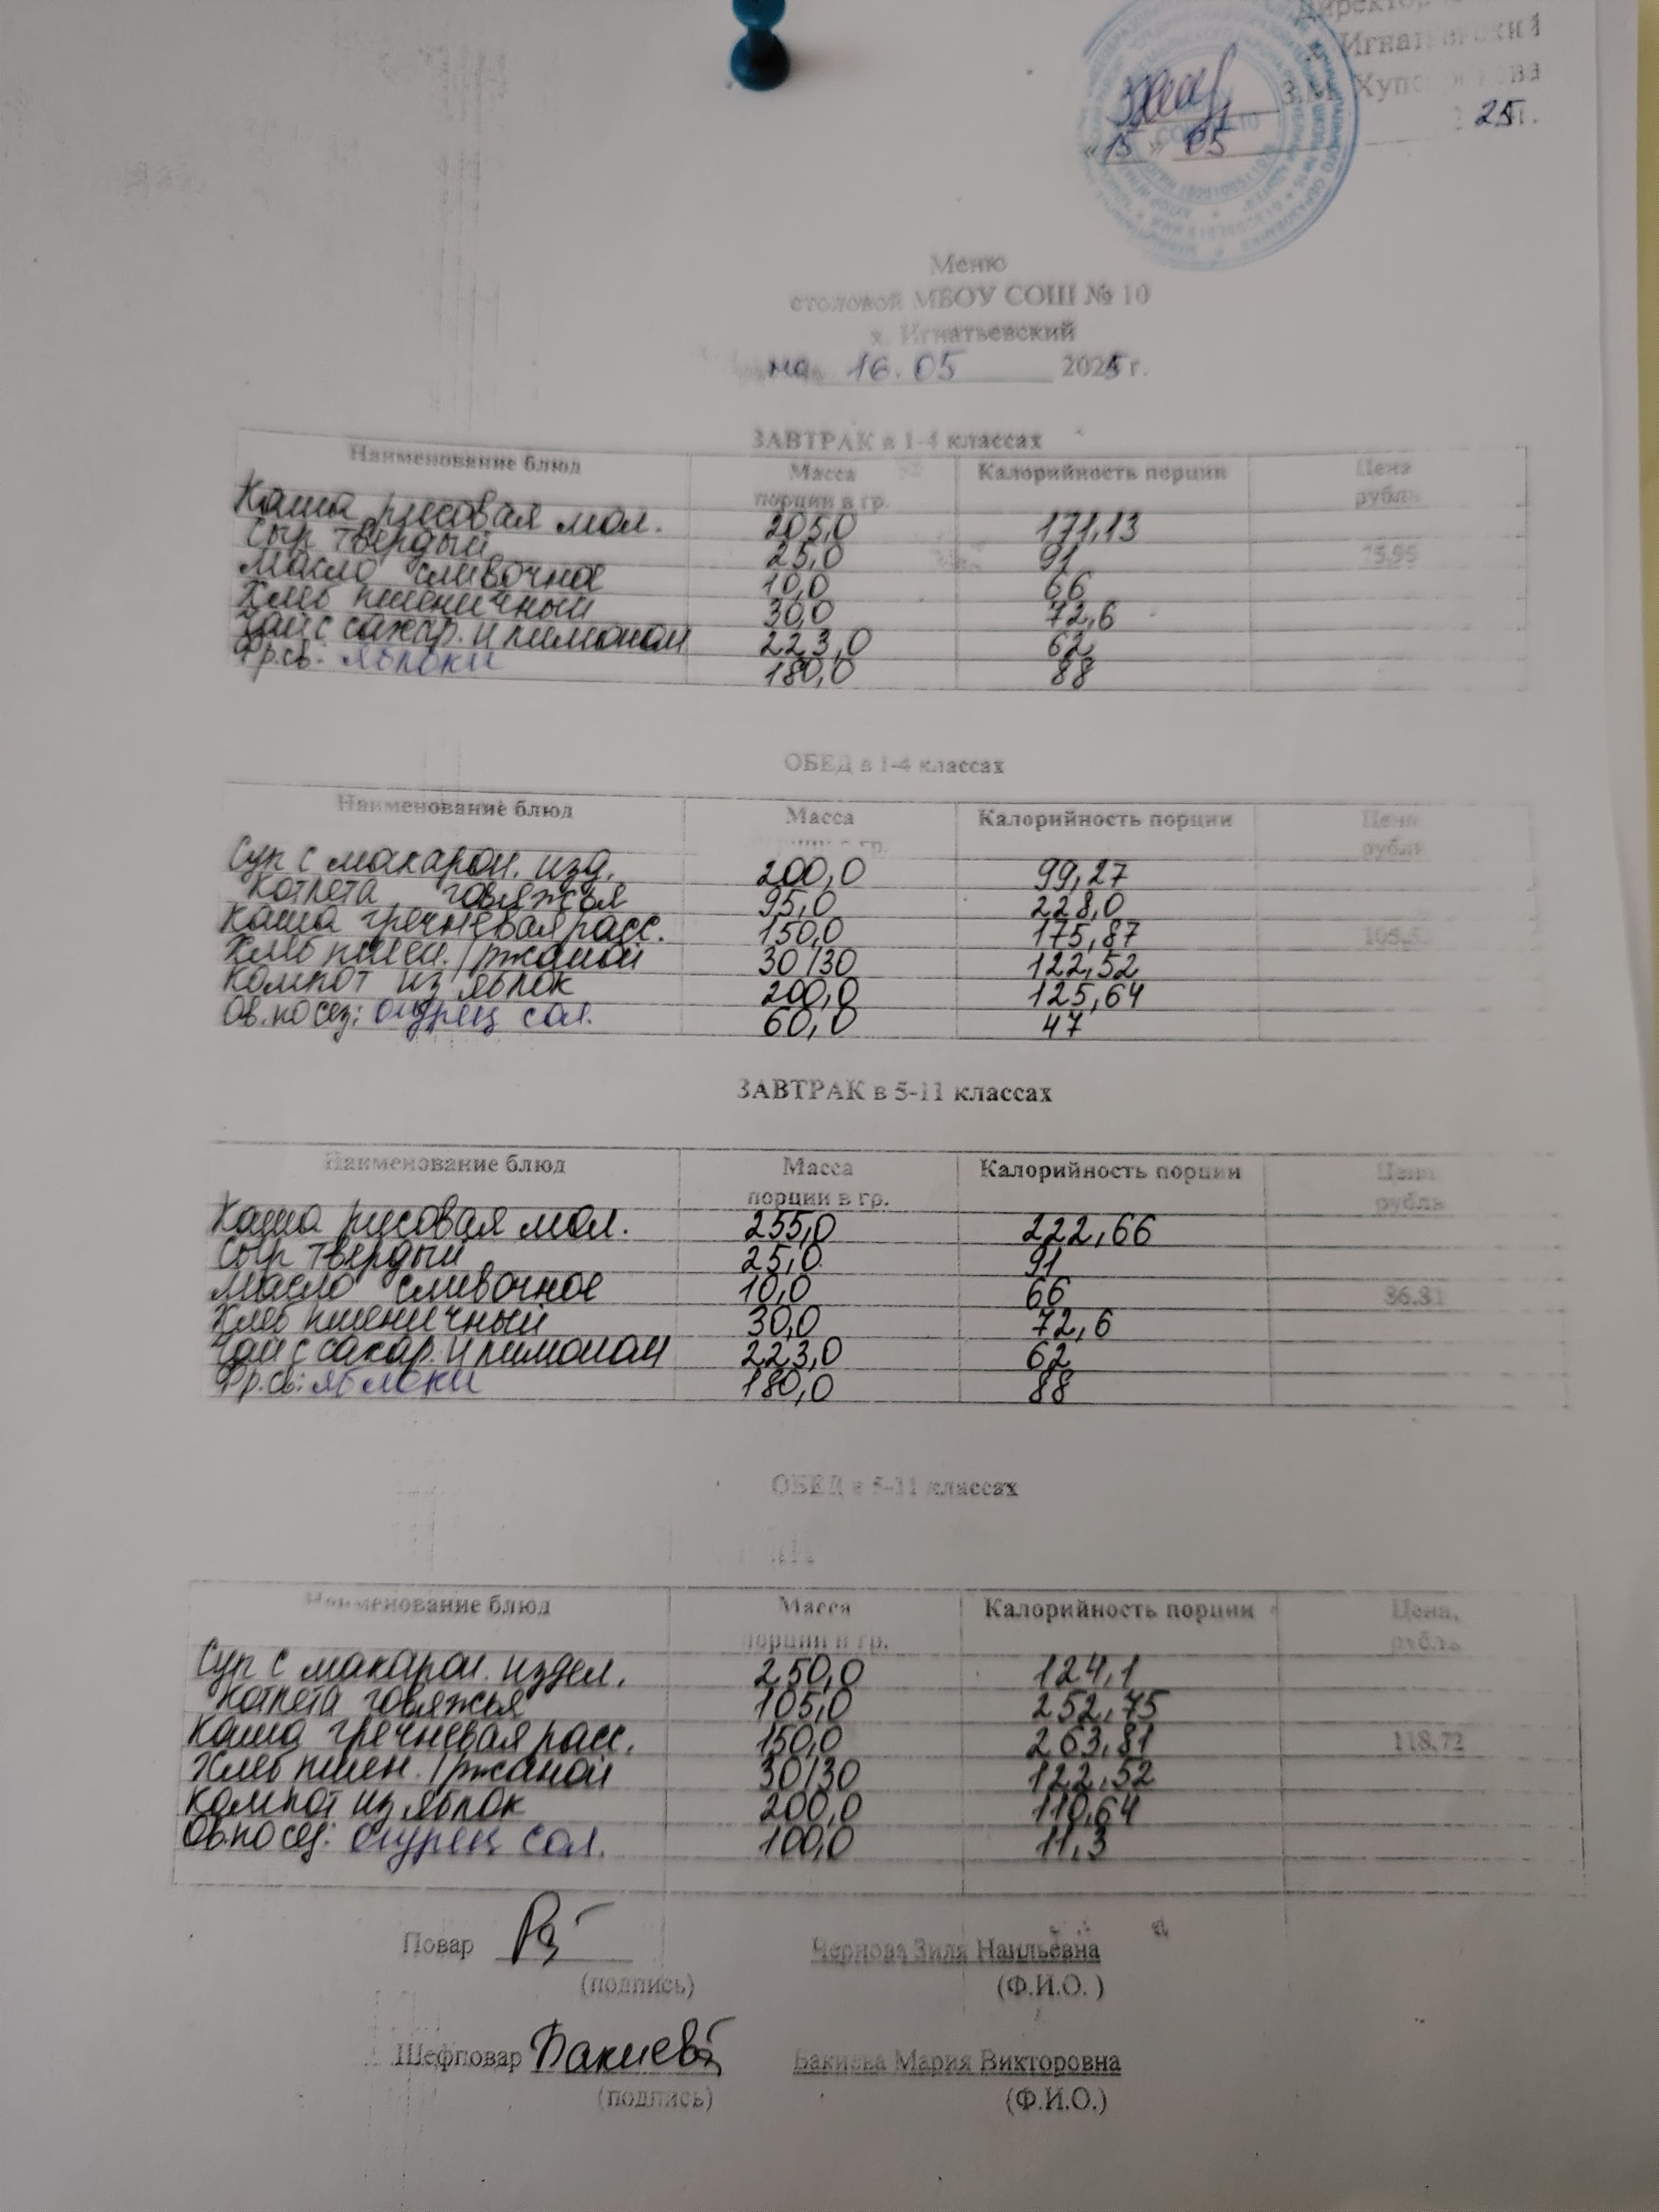 Директор
х. Игнатьевский
«15» 05 25г.
Меню
столовой МБОУ СОШ № 10
х. Игнатьевский
на 16.05 2025 г.
ЗАВТРАК в 1-4 классах
Наименование блюд Масса порции в гр. Калорийность порции Цена рубль
Каша рисовая мол. 205,0 171,13
Сыр твердый 25,0 91 75,95
Масло сливочное 10,0 66
Хлеб пшеничный 30,0 72,6
Чай с сахар. и лимоном 223,0 62
Фр.св: яблоки 180,0 88
ОБЕД в 1-4 классах
Наименование блюд Масса гр. Калорийность порции Цена рубль
Суп с макарон. изд. 200,0 99,27
Котлета говяжья 95,0 228,0
Каша гречневая расс. 150,0 175,87
Хлеб пшен. /ржаной 30/30 122,52
Компот из яблок 200,0 125,64
Ов.по сез: огурец сол. 60,0 47
ЗАВТРАК в 5-11 классах
Наименование блюд Масса порции в гр. Калорийность порции Цена рубль
Каша рисовая мол. 255,0 222,66
Сыр твердый 25,0 91
Масло сливочное 10,0 66
Хлеб пшеничный 30,0 72,6
Чай с сахар. и лимоном 223,0 62
Фр.св: яблоки 180,0 88
ОБЕД в 5-11 классах
Наименование блюд Масса порции в гр. Калорийность порции Цена, рубль
Суп с макарон. издел. 250,0 124,1
Котлета говяжья 105,0 252,75
Каша гречневая расс. 150,0 263,81 118,72
Хлеб пшен. /ржаной 30/30 122,52
Компот из яблок 200,0 110,64
Ов.по сез: огурец сол. 100,0 11,3
Повар Чернова Зиля Наильевна
(подпись) (Ф.И.О. )
Шефповар Бакиева Бакиева Мария Викторовна
(подпись) (Ф.И.О.)